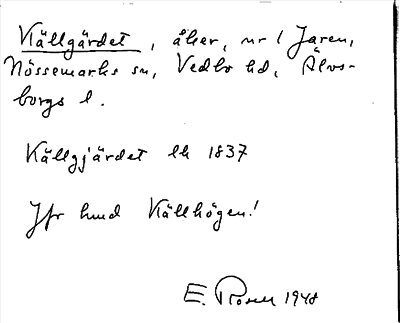 Källgärdet, åker, nr 1 Jaren,
Nössemarks sn, Vedbo hd, Älvs-
borgs l.
Källgjärdet lk 1837
Jfr hmd Källhögen!
E. Rosell 1948